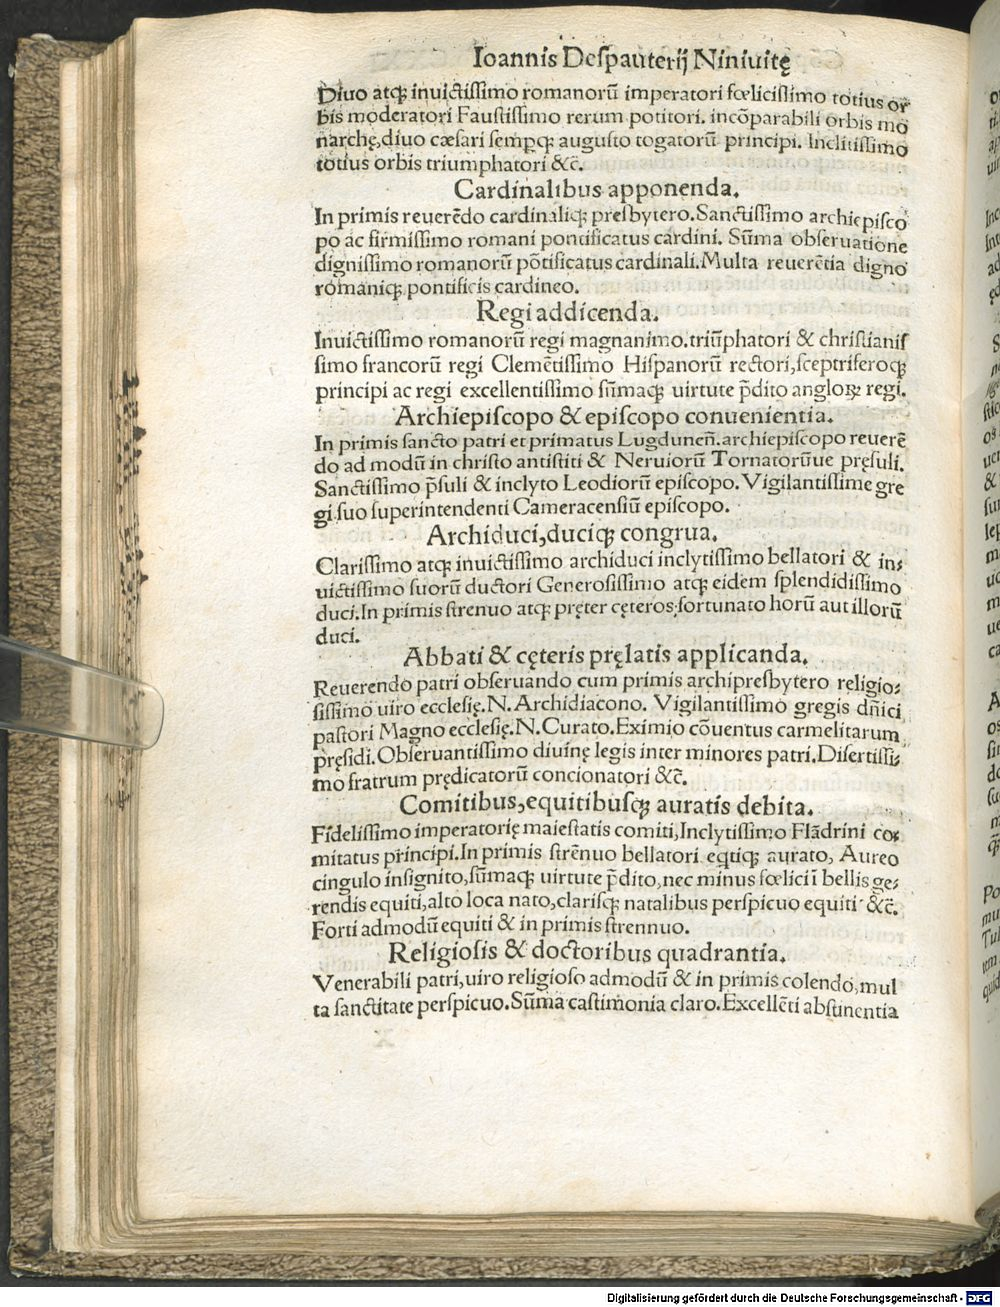 Ioannis Despauterij Niniuitę
Diuo atqꝫ inuictissimo romanorū imperatori fœlicissimo totius or
bis moderatori Faustissimo rerum potitori. incōparabili orbis mo
narchę,diuo cæsari sempqꝫ augusto togatorū principi. Inclitissimo
totius orbis triumphatori &c̄.
Cardinalibus apponenda.
In primis reuerēdo cardinaliqꝫ presbytero.Sanctissimo archiepisco
po ac firmissimo romani pontificatus cardini. Sūma obseruatione
dignissimo romanorū pōtificatus cardinali.Multa reuerētia digno
romaniqꝫ pontificis cardineo.
Regi addicenda.
Inuictissimo romanorū regi magnanimo.triūphatori & christianis
simo francorum regi Clemētissimo Hispanorū rectori,sceptriferoqꝫ
principi ac regi excellentissimo sūmaqꝫ uirtute p̄dito angloꝝ regi.
Archiepiscopo & episcopo conuenientia.
In primis sancto patri et primatus Lugdunen̄.archiepiscopo reuerē
do ad modū in christo antistiti & Neruiorū Tornatorūue pręsuli.
Sanctissimo p̄suli & inclyto Leodiorū episcopo. Vigilantissime gre
gi suo superintendenti Cameracensiū episcopo.
Archiduci,duciqꝫ congrua.
Clarissimo atqꝫ inuictissimo archiduci inclytissimo bellatori & in⸗
uictissimo suorū ductori Generosissimo atqꝫ eidem splendidissimo
duci.In primis strenuo atqꝫ pręter cęteros,fortunato horū aut illorū
duci.
Abbati & cęteris pręlatis applicanda.
Reuerendo patri obseruando cum primis archipresbytero religio⸗
sissimo uiro ecclesię.N.Archidiacono. Vigilantissimo gregis dn̄ici
pastori Magno ecclesię.N.Curato.Eximio cōuentus carmelitarum
pręsidi.Obseruantissimo diuinę legis inter minores patri.Disertissi⸗
mo fratrum prędicatorū concionatori &c̄.
Comitibus,equitibusqꝫ auratis debita.
Fidelissimo imperatorię maiestatis comiti,Inclytissimo Flādrini co⸗
mitatus principi.In primis strēnuo bellatori eqtiqꝫ aurato, Aureo
cingulo insignito,sūmaqꝫ uirtute p̄dito,nec minus fœlici ī bellis ge⸗
rendis equiti,alto loca nato,clarisqꝫ natalibus perspicuo equiti &c̄.
Forti admodū equiti & in primis strennuo.
Religiosis & doctoribus quadrantia.
Venerabili patri,uiro religioso admodū & in primis colendo,mul
ta sanctitate perspicuo.Sūma castimonia claro.Excellēti abstinentia
Digitalisierung gefördert durch die Deutsche Forschungsgemeinschaft - DFG